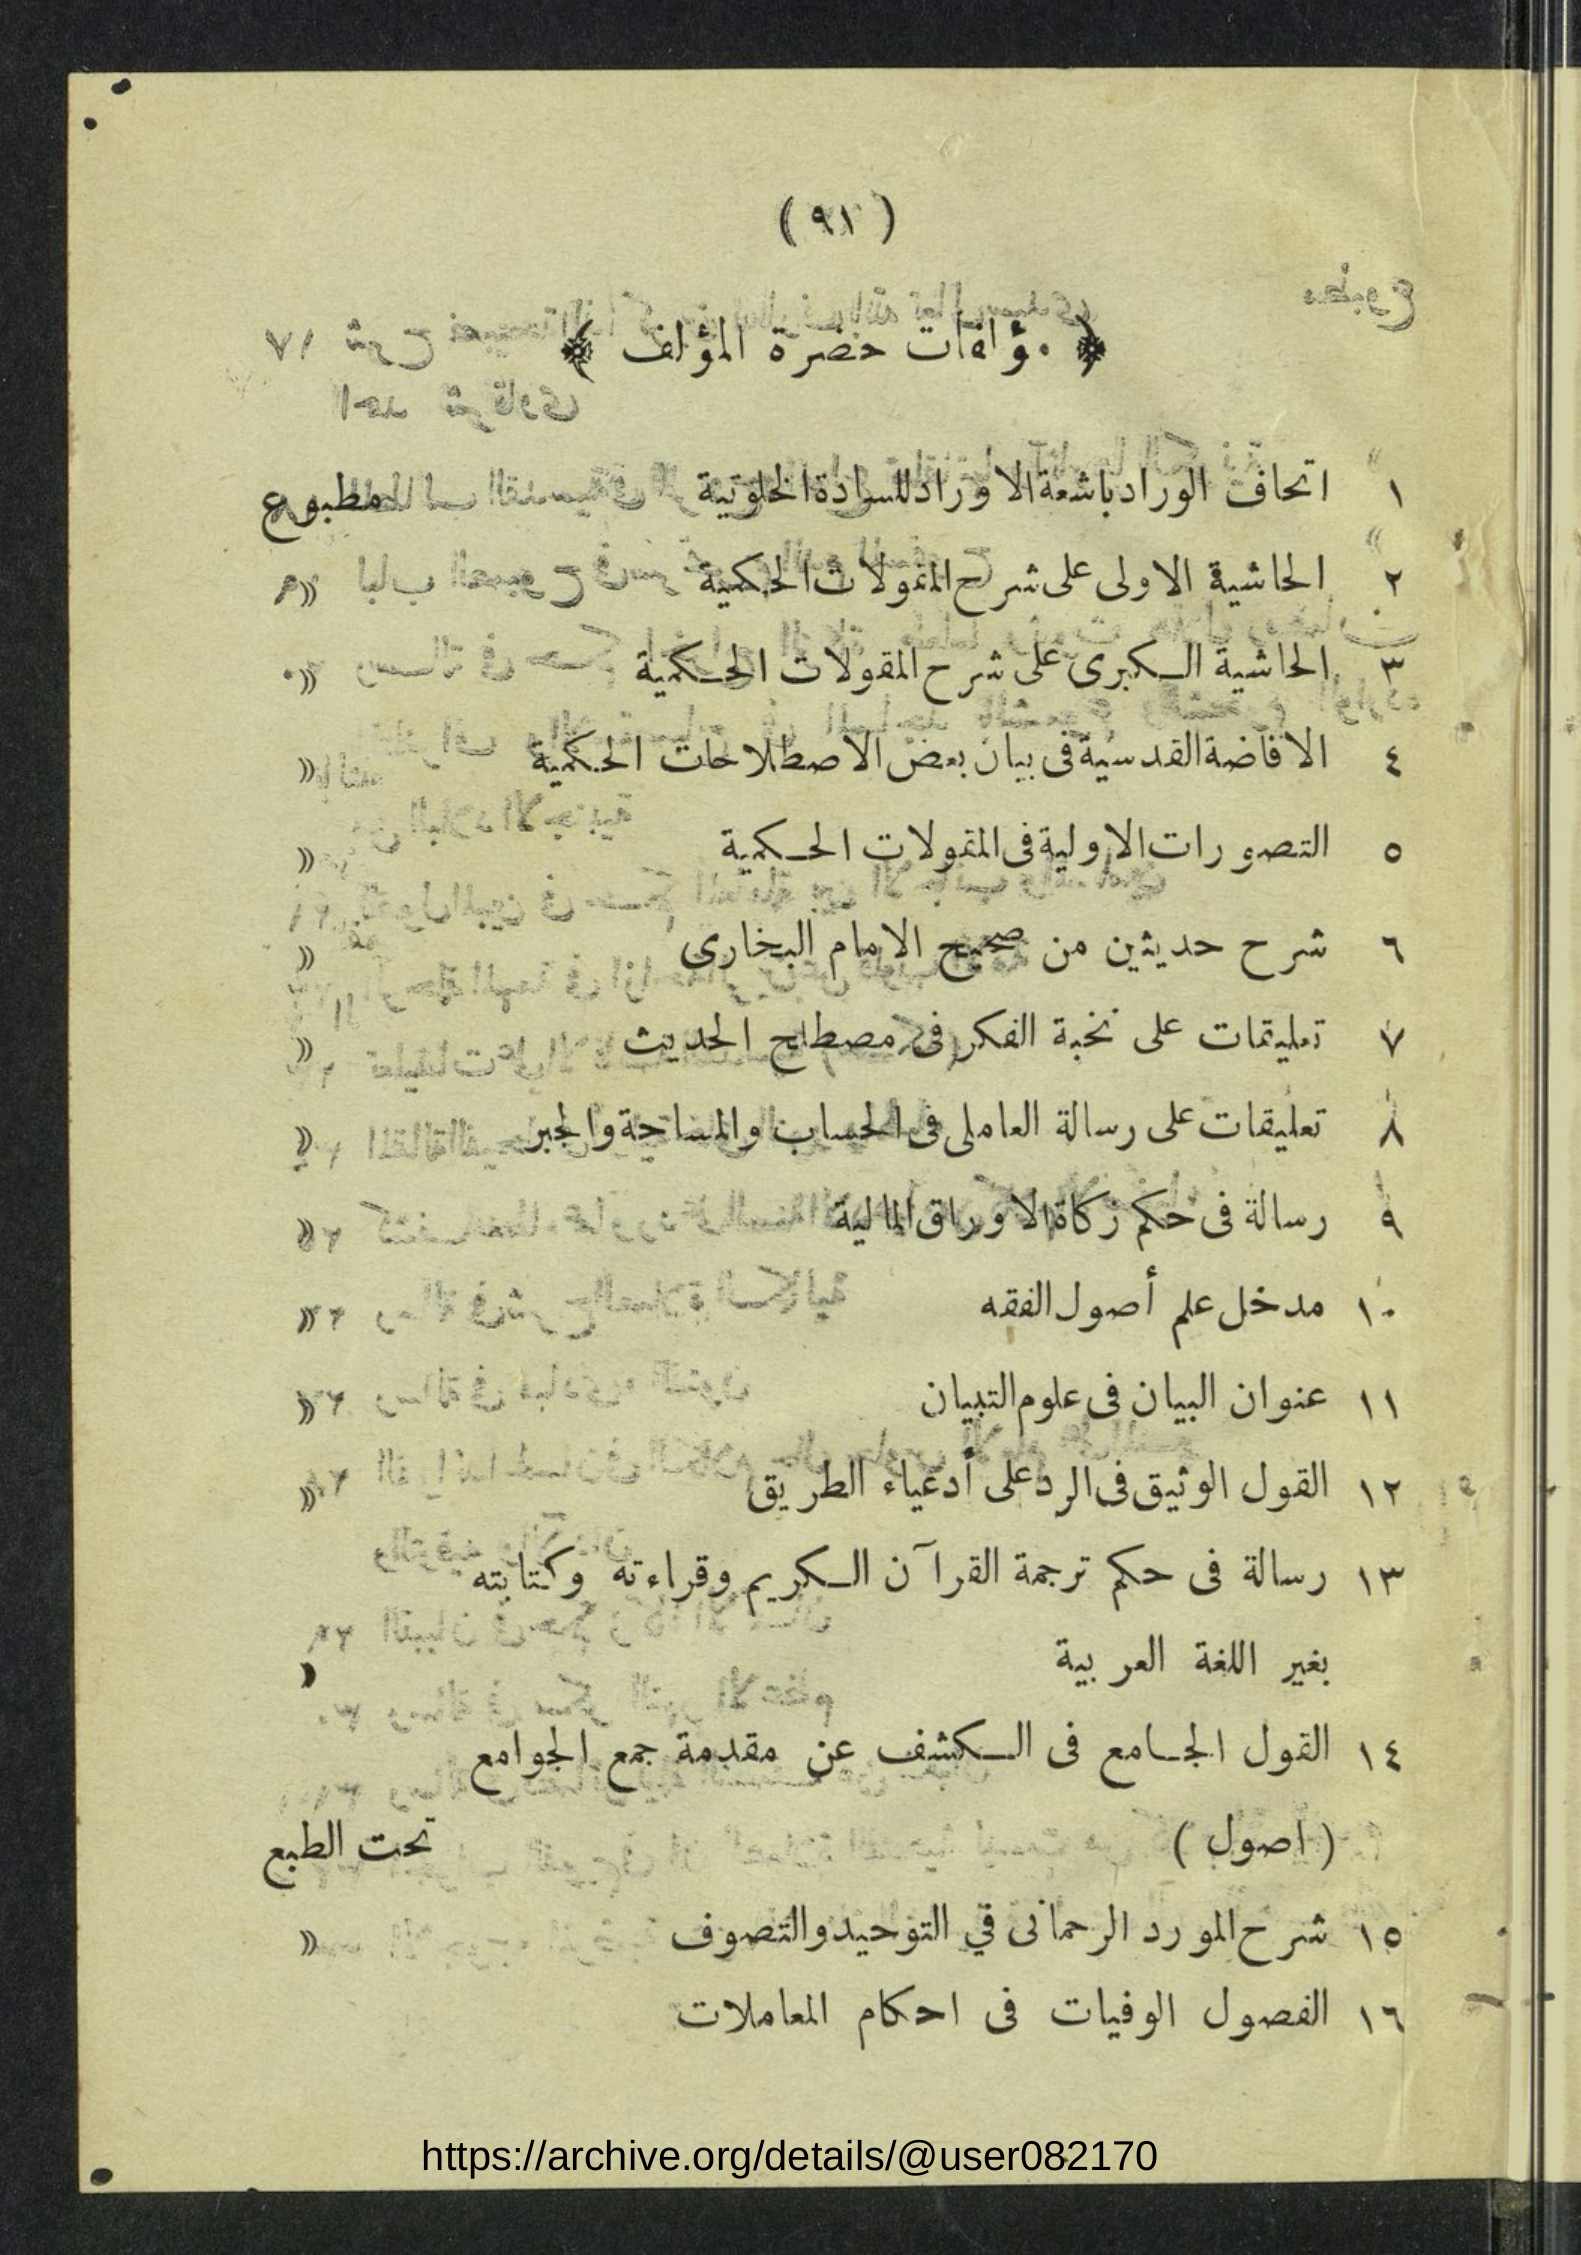 ( ٩١ )
﴿ مؤلفات حضرة المؤلف ﴾
١ اتحاف الوراد باشعة الاوراد للسادة الخلوتية مطبوع
٢ الحاشية الاولى على شرح المقولات الحكمية »
٣ الحاشية الكبرى على شرح المقولات الحكمية »
٤ الافاضة القدسية فى بيان بعض الاصطلاحات الحكمية »
٥ التصورات الاولية فى المقولات الحكمية »
٦ شرح حديثين من صحيح الامام البخارى »
٧ تعليقات على نخبة الفكر فى مصطلح الحديث »
٨ تعليقات على رسالة العاملى فى الحساب والمساحة والجبر »
٩ رسالة فى حكم زكاة الاوراق المالية »
١٠ مدخل علم أصول الفقه »
١١ عنوان البيان فى علوم التبيان »
١٢ القول الوثيق فى الرد على أدعياء الطريق »
١٣ رسالة فى حكم ترجمة القرآن الكريم وقراءته وكتابته
بغير اللغة العربية »
١٤ القول الجامع فى الكشف عن مقدمة جمع الجوامع
( اصول ) تحت الطبع
١٥ شرح المورد الرحمانى في التوحيد والتصوف »
١٦ الفصول الوفيات فى احكام المعاملات
https://archive.org/details/@user082170